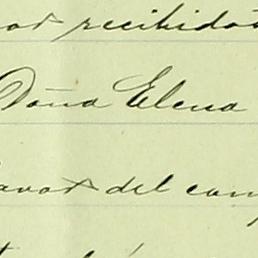 recibido
Doña Elena
favor del